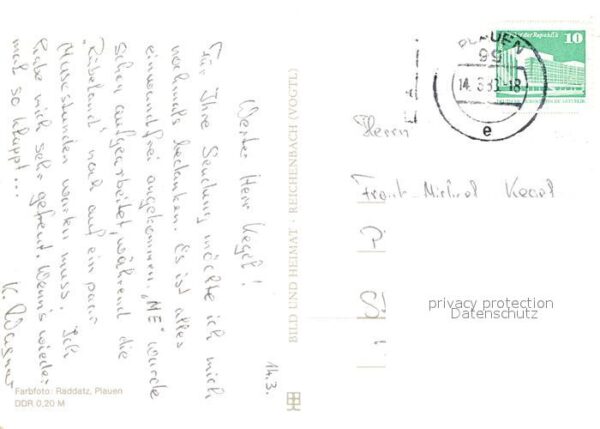 14.3.
Werter Herr Kegel!
Für Ihre Sendung möchte ich mich
nochmals bedanken. Es ist alles
einwandfrei angekommen. "NE" wurde
schon aufgearbeitet, während die
"Rübeland" noch auf ein paar
Musestunden warten muss. Ich
habe mich sehr gefreut. Wenn's wieder
mal so klappt...
K. Wagner
BILD UND HEIMAT · REICHENBACH (VOGTL)
Farbfoto: Raddatz, Plauen
DDR 0,20 M
der Republik 10
PLAUEN
99
e
Herrn
Frank-Michael Kegel
privacy protection
Datenschutz